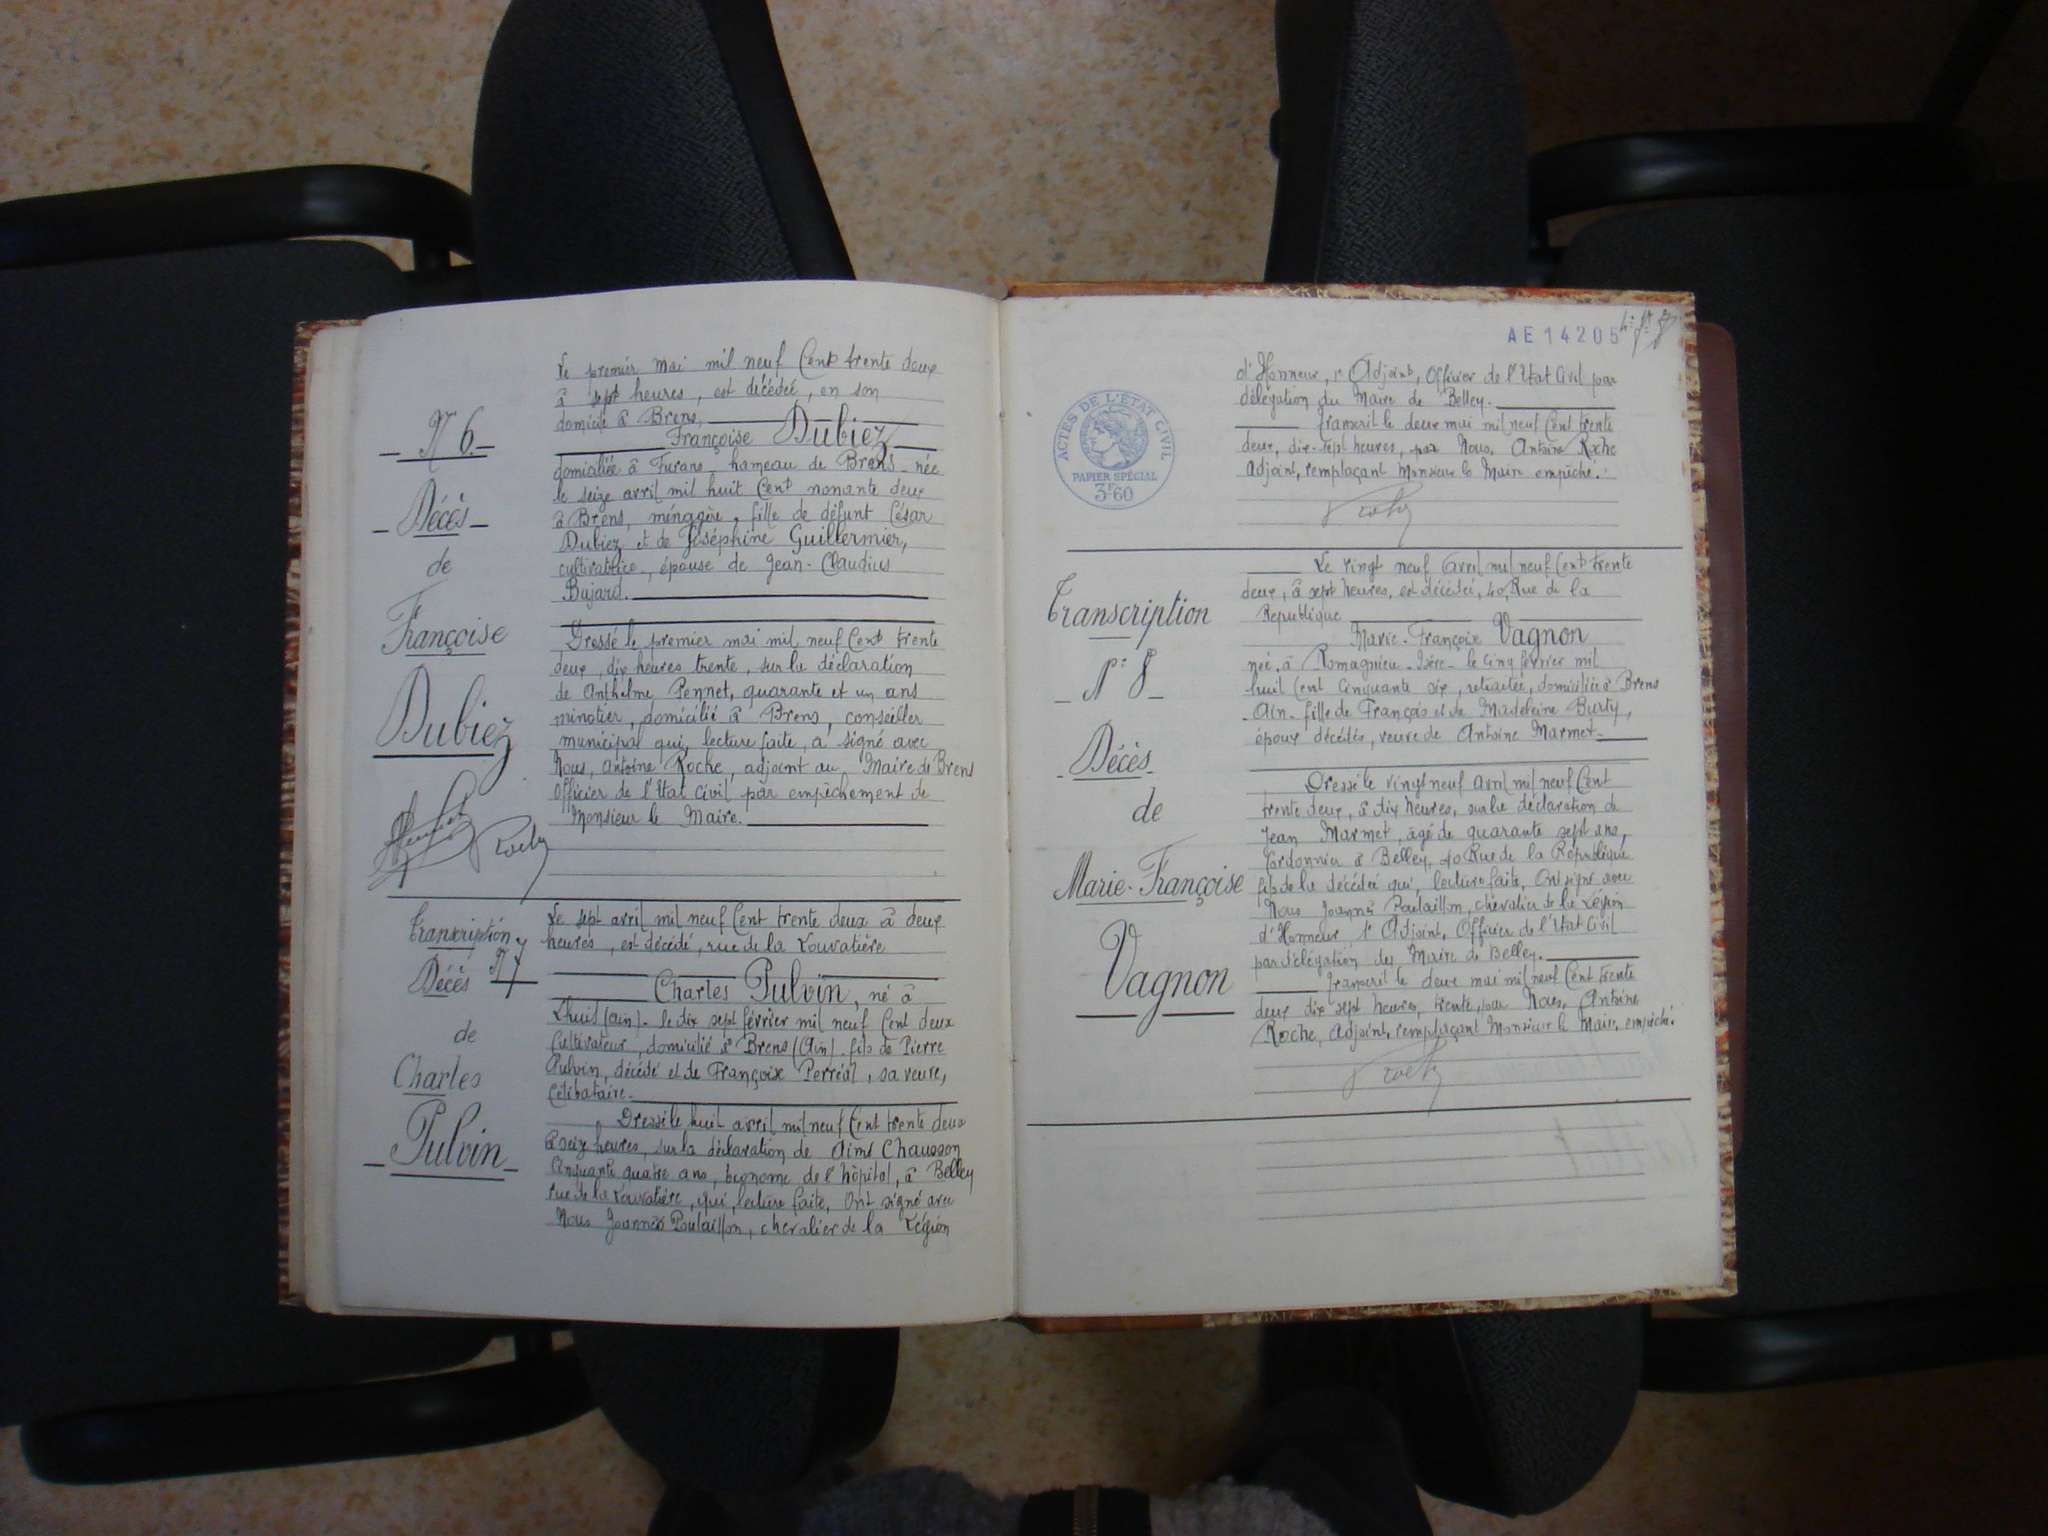 Le premier mai mil neuf Cent trente deux
à sept heures, est décédée, en son
domicile à Brens,
Françoise Dubiez
domiciliée à Furans - hameau de Brens - née
le seize avril mil huit Cent nonante deux
à Brens, ménagère, fille de défunt César
Dubiez et de Joséphine Guillermier,
cultivatrice, épouse de Jean-Claudius
Bajard.
Dressé le premier mai mil neuf Cent trente
deux, dix heures trente, sur la déclaration
de Anthelme Pennet, quarante et un ans
minotier, domicilié à Brens, conseiller
municipal qui, lecture faite, a signé avec
Nous, Antoine Roche, adjoint au Maire de Brens
Officier de l'Etat Civil par empêchement de
Monsieur le Maire.
N° 6
Décès
de
Françoise
Dubiez
Roche
Transcription
N° 7
Décès
de
Charles
Pulvin
Le sept avril mil neuf Cent trente deux à deux
heures, est décédé, rue de la Louvatière
Charles Pulvin, né à
Lhuis (Ain) - le dix sept février mil neuf Cent deux
Cultivateur, domicilié à Brens (Ain) fils de Pierre
Pulvin, décédé et de Françoise Perréal, sa veuve,
Célibataire.
Dressé le huit avril mil neuf Cent trente deux
à seize heures, sur la déclaration de Aimé Chausson
Cinquante quatre ans, économe de l'hôpital, à Belley
rue de la Louvatière, qui, lecture faite, Ont signé avec
Nous Joannès Poulaillon, chevalier de la Légion
AE 14205
ACTES DE L'ÉTAT CIVIL
PAPIER SPÉCIAL
3F60
d'Honneur, 1er Adjoint, Officier de l'Etat Civil par
délégation du Maire de Belley.
Transcrit le deux mai mil neuf Cent trente
deux, dix-sept heures, par Nous, Antoine Roche
Adjoint, remplaçant Monsieur le Maire empêché.
Roche
Transcription
N° 8
Décès
de
Marie-Françoise
Vagnon
Le vingt neuf Avril mil neuf Cent trente
deux, à sept heures, est décédée, 40, Rue de la
République
Marie-Françoise Vagnon
née à Romagnieu - Isère - le cinq février mil
huit Cent Cinquante six, retraitée, domiciliée à Brens
- Ain - fille de François et de Madeleine Burty,
époux décédés, veuve de Antoine Marmet
Dressé le vingt neuf Avril mil neuf Cent
trente deux, à dix heures, sur la déclaration de
Jean Marmet, âgé de quarante sept ans,
Cordonnier à Belley, 40 Rue de la République
fils de la décédée qui, lecture faite, Ont signé avec
Nous Joannès Poulaillon, chevalier de la Légion
d'Honneur, 1er Adjoint, Officier de l'Etat Civil
par délégation du Maire de Belley.
Transcrit le deux mai mil neuf Cent trente
deux dix sept heures, trente, par Nous, Antoine
Roche, Adjoint, remplaçant Monsieur le Maire, empêché.
Roche